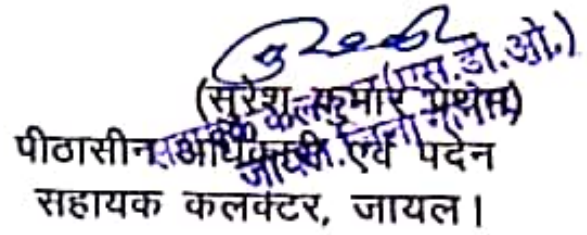 (सुरेश कुमार प्रथम)
पीठासीन अधिकारी एवं पदेन
सहायक कलक्टर, जायल।
सहायक कलक्टर (एस.डी.ओ.)
जायल